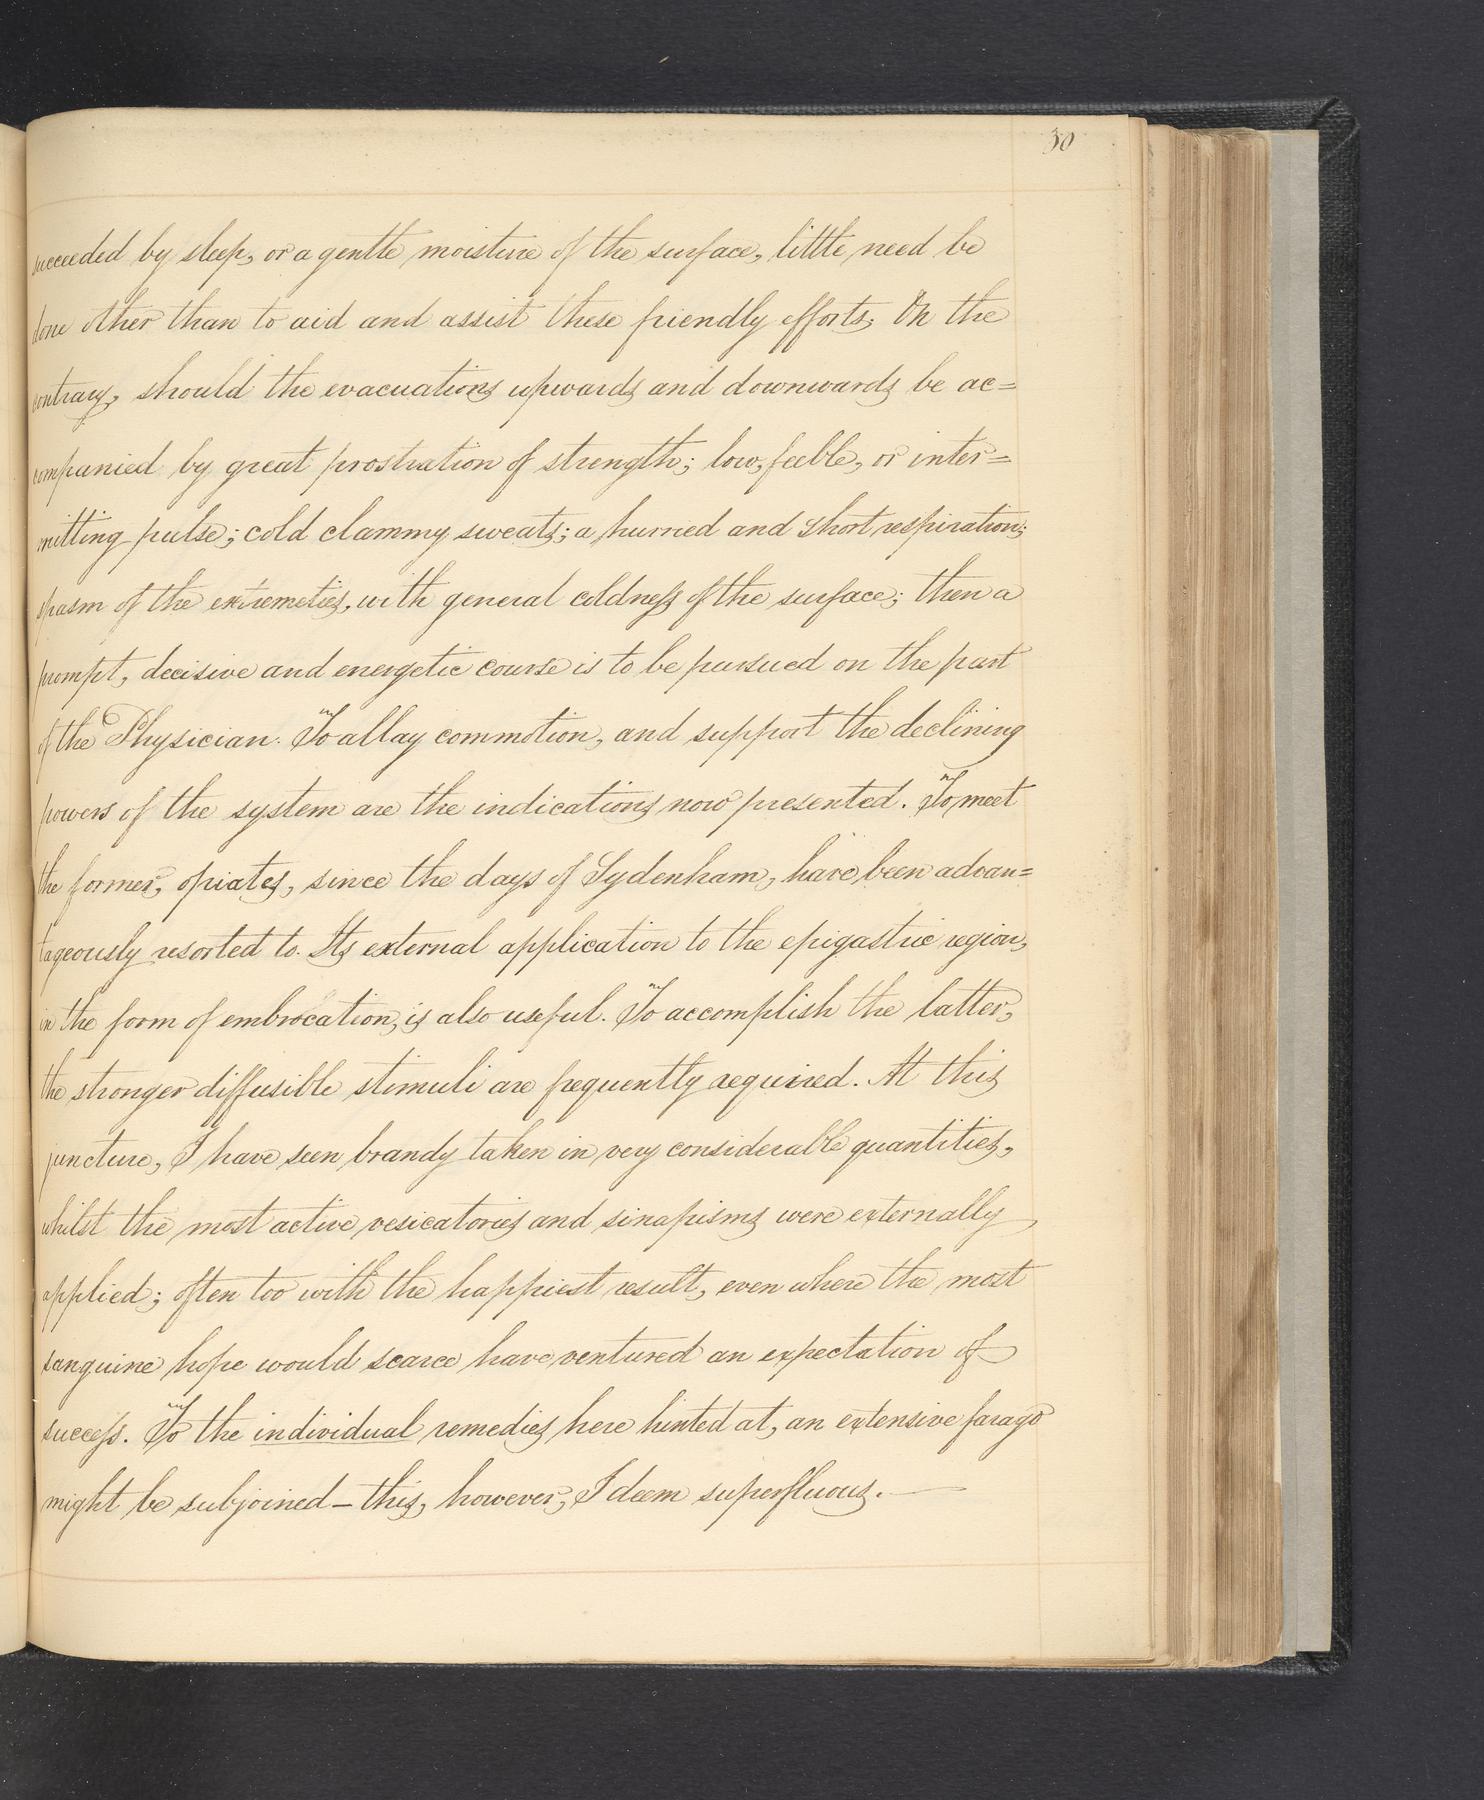 30
succeeded by sleep, or a gentle moisture of the surface, little need be
done other than to aid and assist these friendly efforts. On the
contrary, should the evacuations upwards and downwards be ac=
companied by great prostration of strength; low, feeble, or inter=
mitting pulse; cold clammy sweats; a hurried and short respiration;
spasm of the extremeties, with general coldness of the surface; then a
prompt, decisive and energetic course is to be pursued on the part
of the Physician. To allay commotion, and support the declining
powers of the system are the indications now presented. To meet
the former, opiates, since the days of Sydenham, have been advan=
tageously resorted to. Its external application to the epigastric region,
in the form of embrocation, is also useful. To accomplish the latter,
the stronger diffusible stimuli are frequently required. At this
juncture, I have seen brandy taken in very considerable quantities,
whilst the most active vesicatories and sinapisms were externally
applied; often too with the happiest result, even where the most
sanguine hope would scarce have ventured an expectation of
success. To the individual remedies here hinted at, an extensive farago
might be subjoined – this, however, I deem superfluous. —